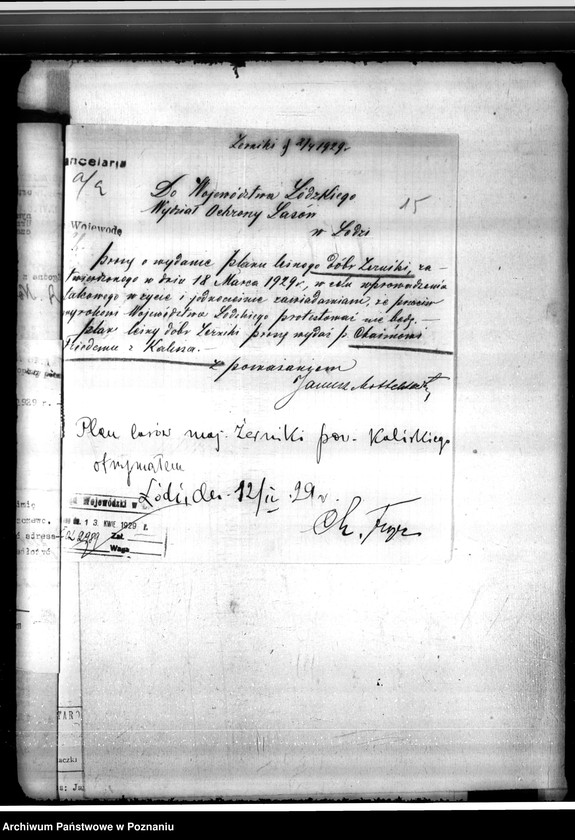 Żerniki d 2/4 1929 r
ancelarja
15
Do Województwa Łódzkiego
Wydział Ochrony Lasów
w Łodzi
Wojewodę
proszę o wydanie planu leśnego dóbr Żerniki, za-
twierdzonego w dniu 18 Marca 1929 r, w celu wprowadzenia
takowego w życie i jednocześnie zawiadamiam, że przeciw
wyrokowi Województwa Łódzkiego protestować nie będę. —
plan leśny dóbr Żerniki proszę wydać p. Chaimowi
z Kalisza. —
z poważaniem
Janusz
Plan lasów maj. Żerniki pow. Kaliskiego
otrzymałem
Łódź, dn. 12/IV 29 r.
Ch.
d Wojewódzki w
dn. 13. KWI 1929 r.
Zał.
Waga
1929 r.
imię
adresa
TARO
Archiwum Państwowe w Poznaniu